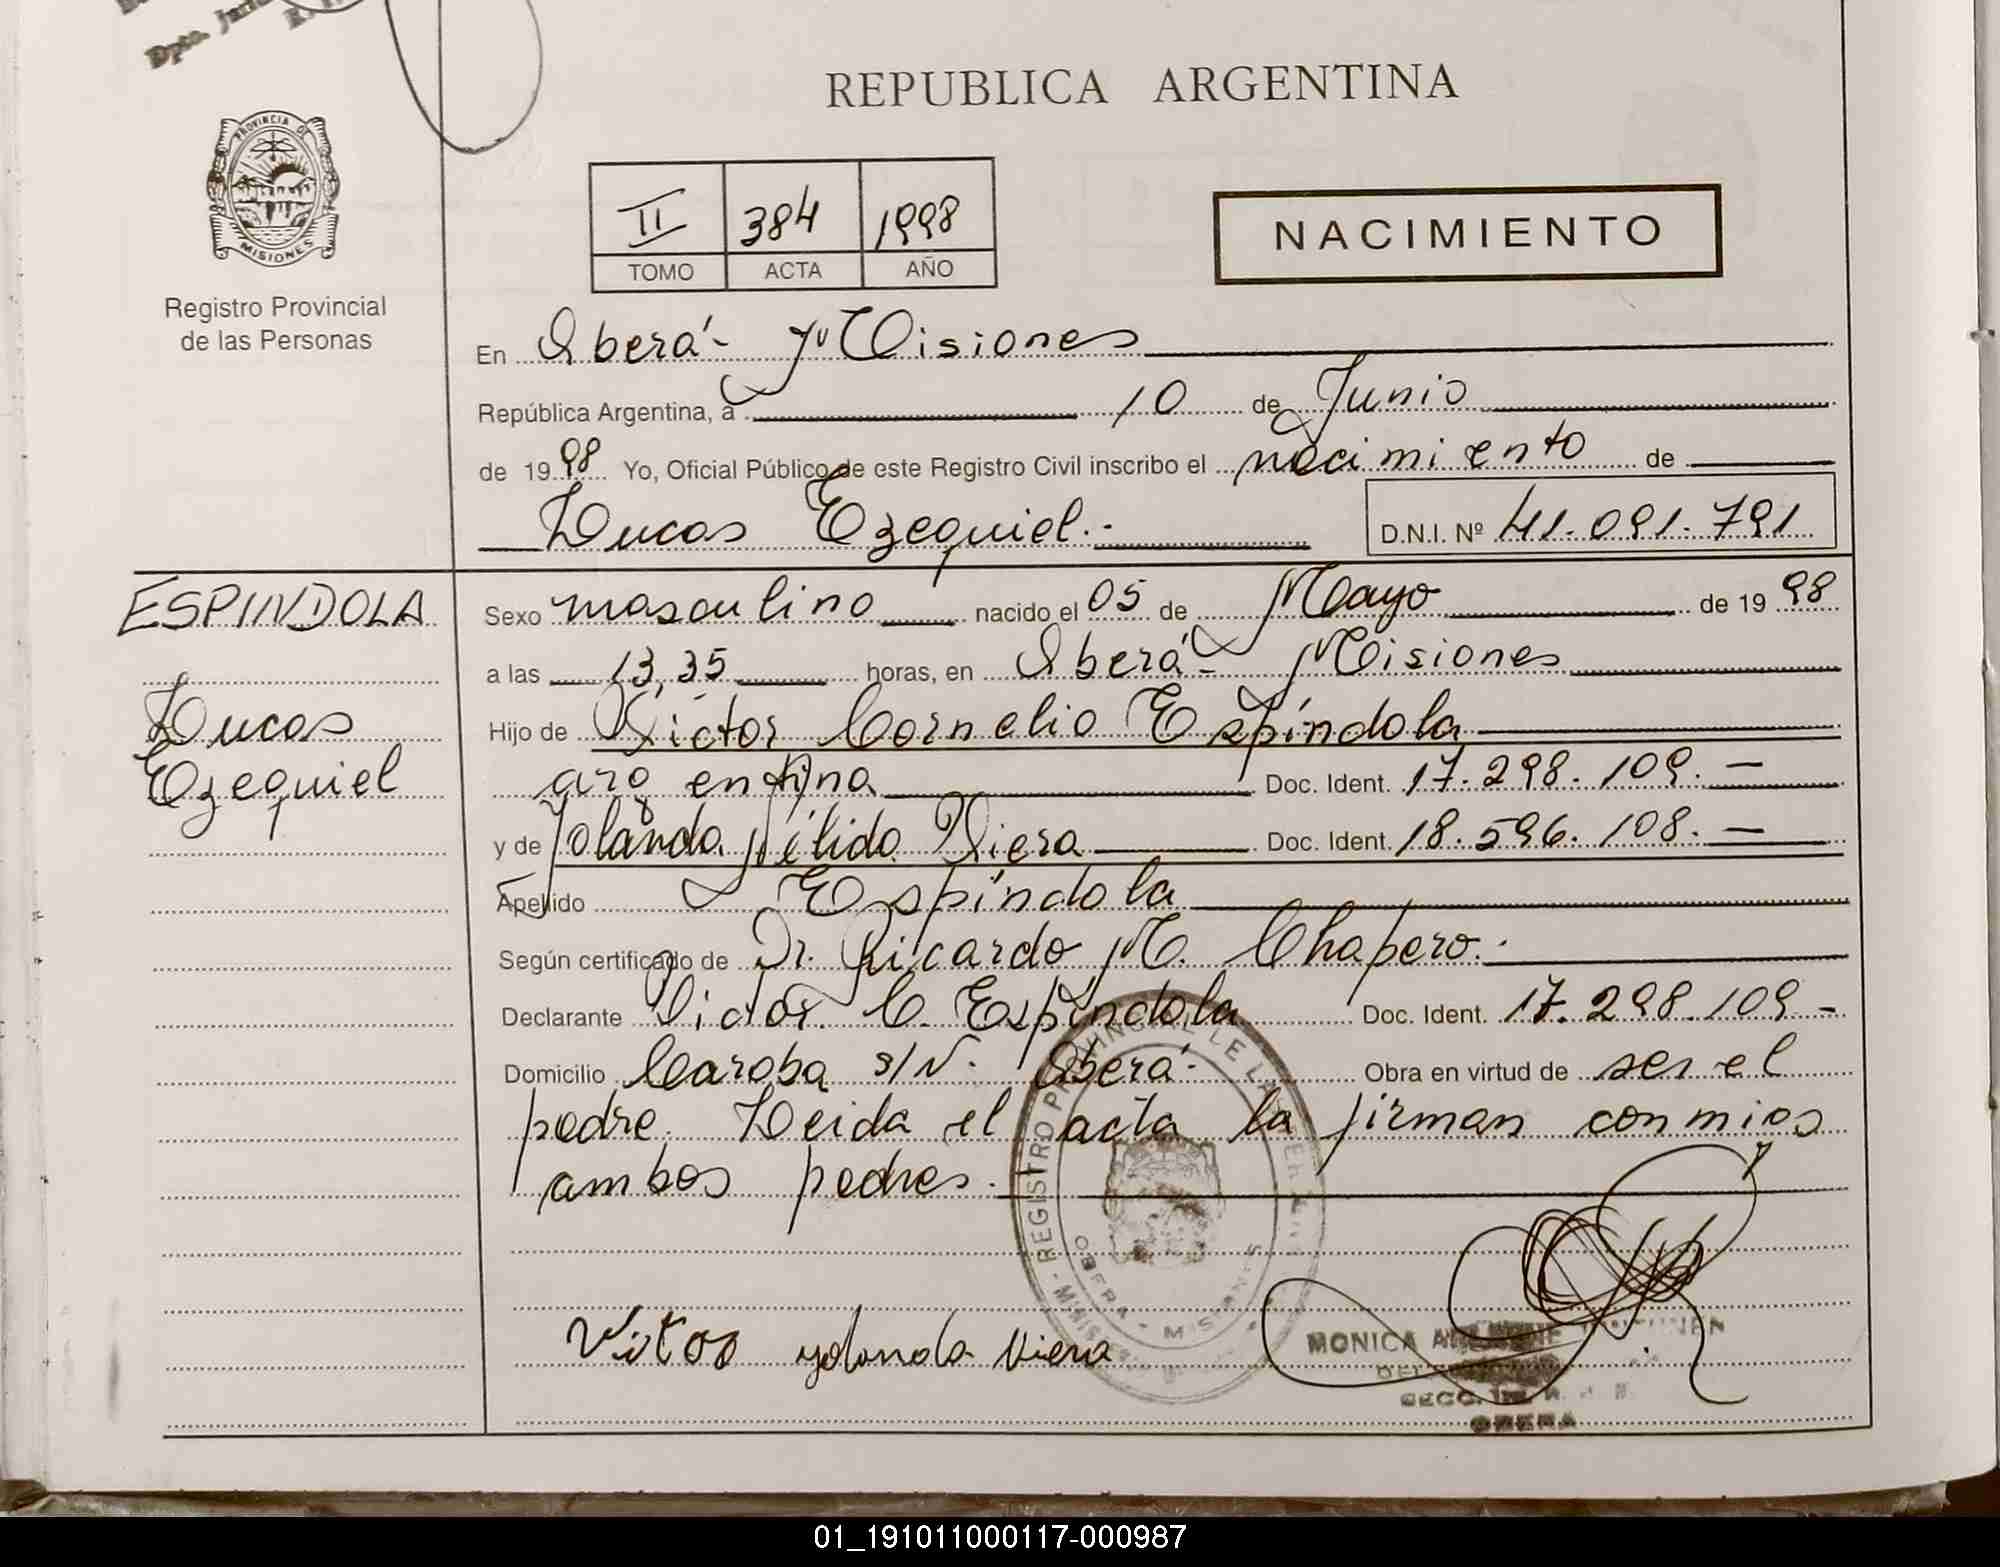 Dpto.
REPUBLICA ARGENTINA
PROVINCIA DE
MISIONES
Registro Provincial
de las Personas
II 384 1998
TOMO ACTA AÑO
NACIMIENTO
En Oberá - Misiones
República Argentina, a 10 de Junio
de 1998 Yo, Oficial Público de este Registro Civil inscribo el nacimiento de
Lucas Ezequiel.- D.N.I. Nº 41.091.791
ESPINDOLA
Lucas
Ezequiel
Sexo masculino nacido el 05 de Mayo de 1998
a las 13,35 horas, en Oberá - Misiones
Hijo de Victor Cornelio Espíndola
argentina Doc. Ident. 17.298.109.-
y de Yolanda Nélida Viera Doc. Ident. 18.596.108.-
Apellido Espíndola
Según certificado de Dr. Ricardo M. Chapero.
Declarante Victor C. Espíndola Doc. Ident. 17.298.109-
Domicilio Caroba s/N. Oberá- Obra en virtud de ser el
padre. Leida el acta la firman conmigo
ambos padres.
REGISTRO PROVINCIAL DE LAS PERSONAS - MISIONES
OBERA - MISIONES
Victor yolanda Viera
MONICA
SECC.
OBERA
01_191011000117-000987